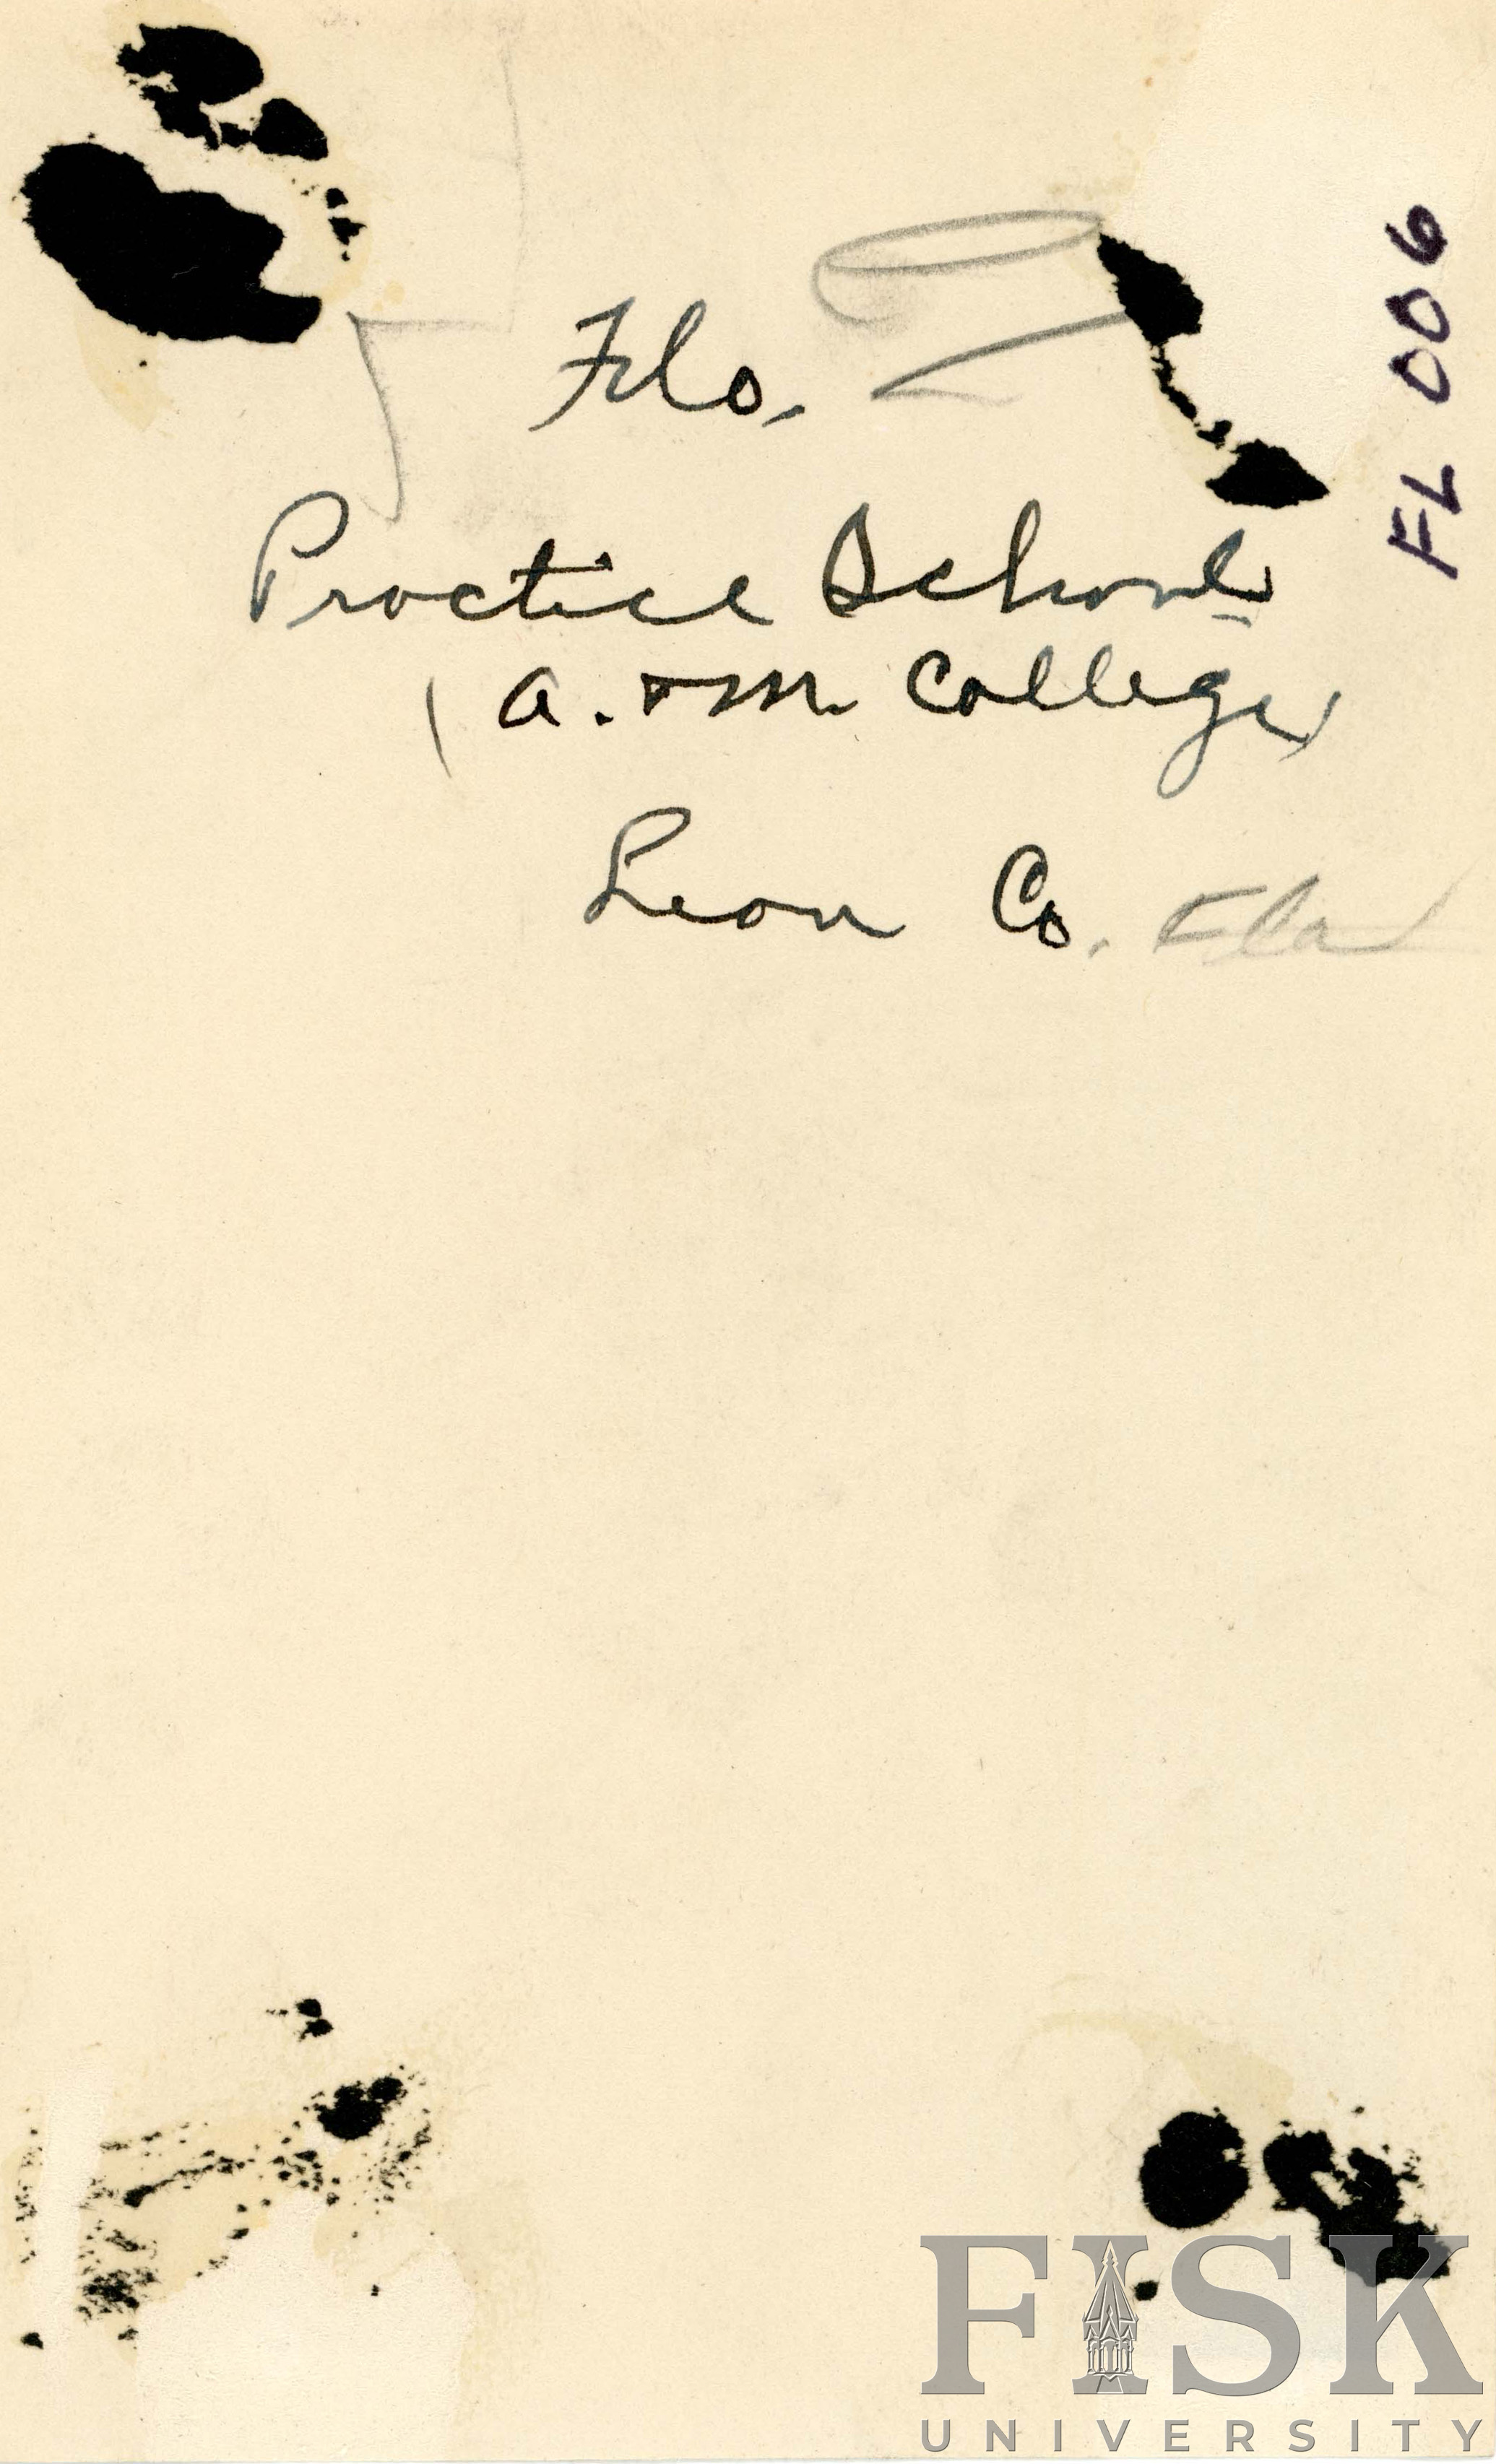 Fla.
Practice School
(A. & M. College)
Leon Co. Fla
FL 006
FISK
UNIVERSITY